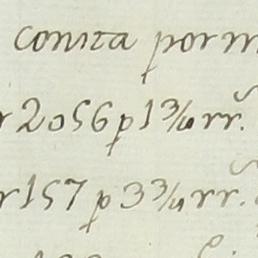 consta por m
r 2056 p 1 3/4 rr.
r 157 p 3 3/4 rr.